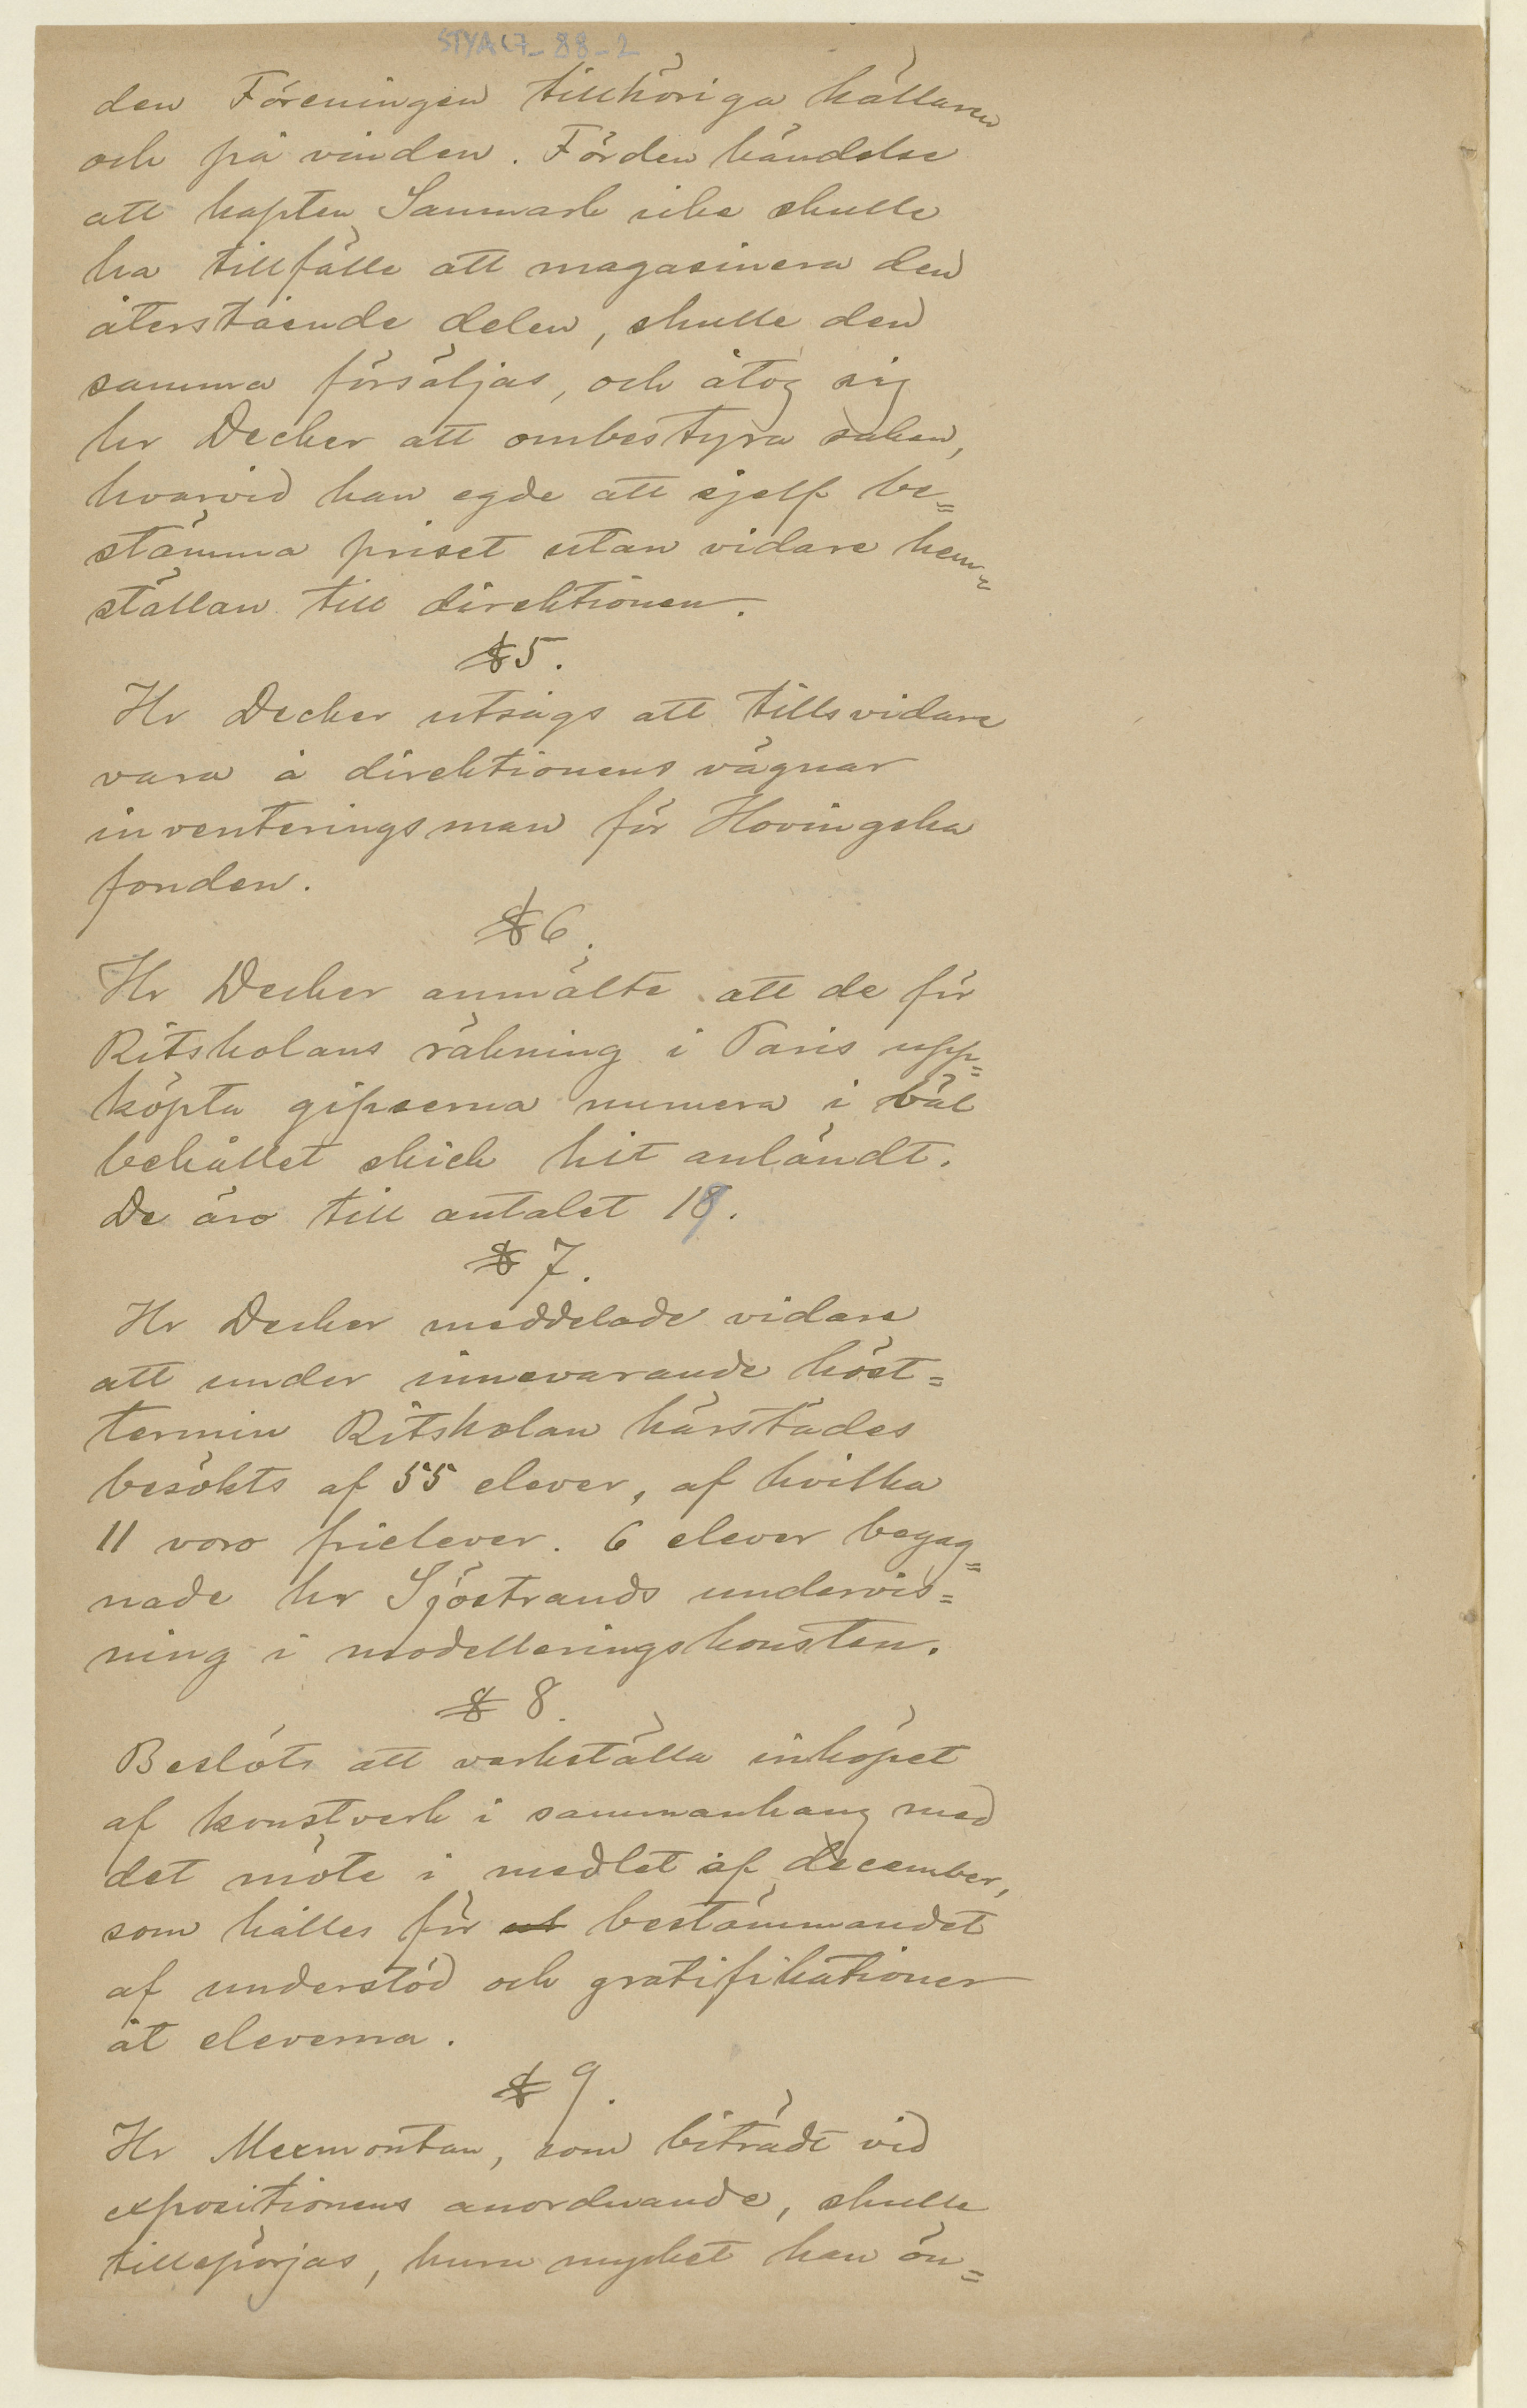 STYA(7-88-2
den Föreningen tillhöriga källaren
och på vinden. Förden händelse
att kapten Sanmark icke skulle
ha tillfälle att magasinera den
återstående delen, skulle den
samma försäljas, och åtog sig
hr Decker att ombestyra saken,
hvarvid han egde att sjelf be=
stämma priset utan vidare hem=
ställan till direktionen.
§ 5.
Hr Decker utsågs att tillsvidare
vara å direktionens vägnar
inventeringsman för Hovingska
fonden.
§ 6.
Hr Decker anmälte att de för
Ritskolans räkning i Paris upp=
köpta gipserna numera i väl
behållet skick hit anländt.
De äro till antalet 19.
§ 7.
Hr Decker meddelade vidare
att under innevarande höst=
termin Ritskolan härstädes
besökts af 55 elever, af hvilka
11 voro frielever. 6 elever begag=
nade hr Sjöstrands undervis=
ning i modelleringskonsten.
§ 8.
Beslöts att verkställa inköpet
af konstverk i sammanhang med
det möte i medlet af december,
som hålles för bestämmandet
af understöd och gratifikationer
åt eleverna.
§ 9.
Hr Mexmontan, som biträdt vid
expositionens anordnande, skulle
tillspörjas, huru mycket han ön=